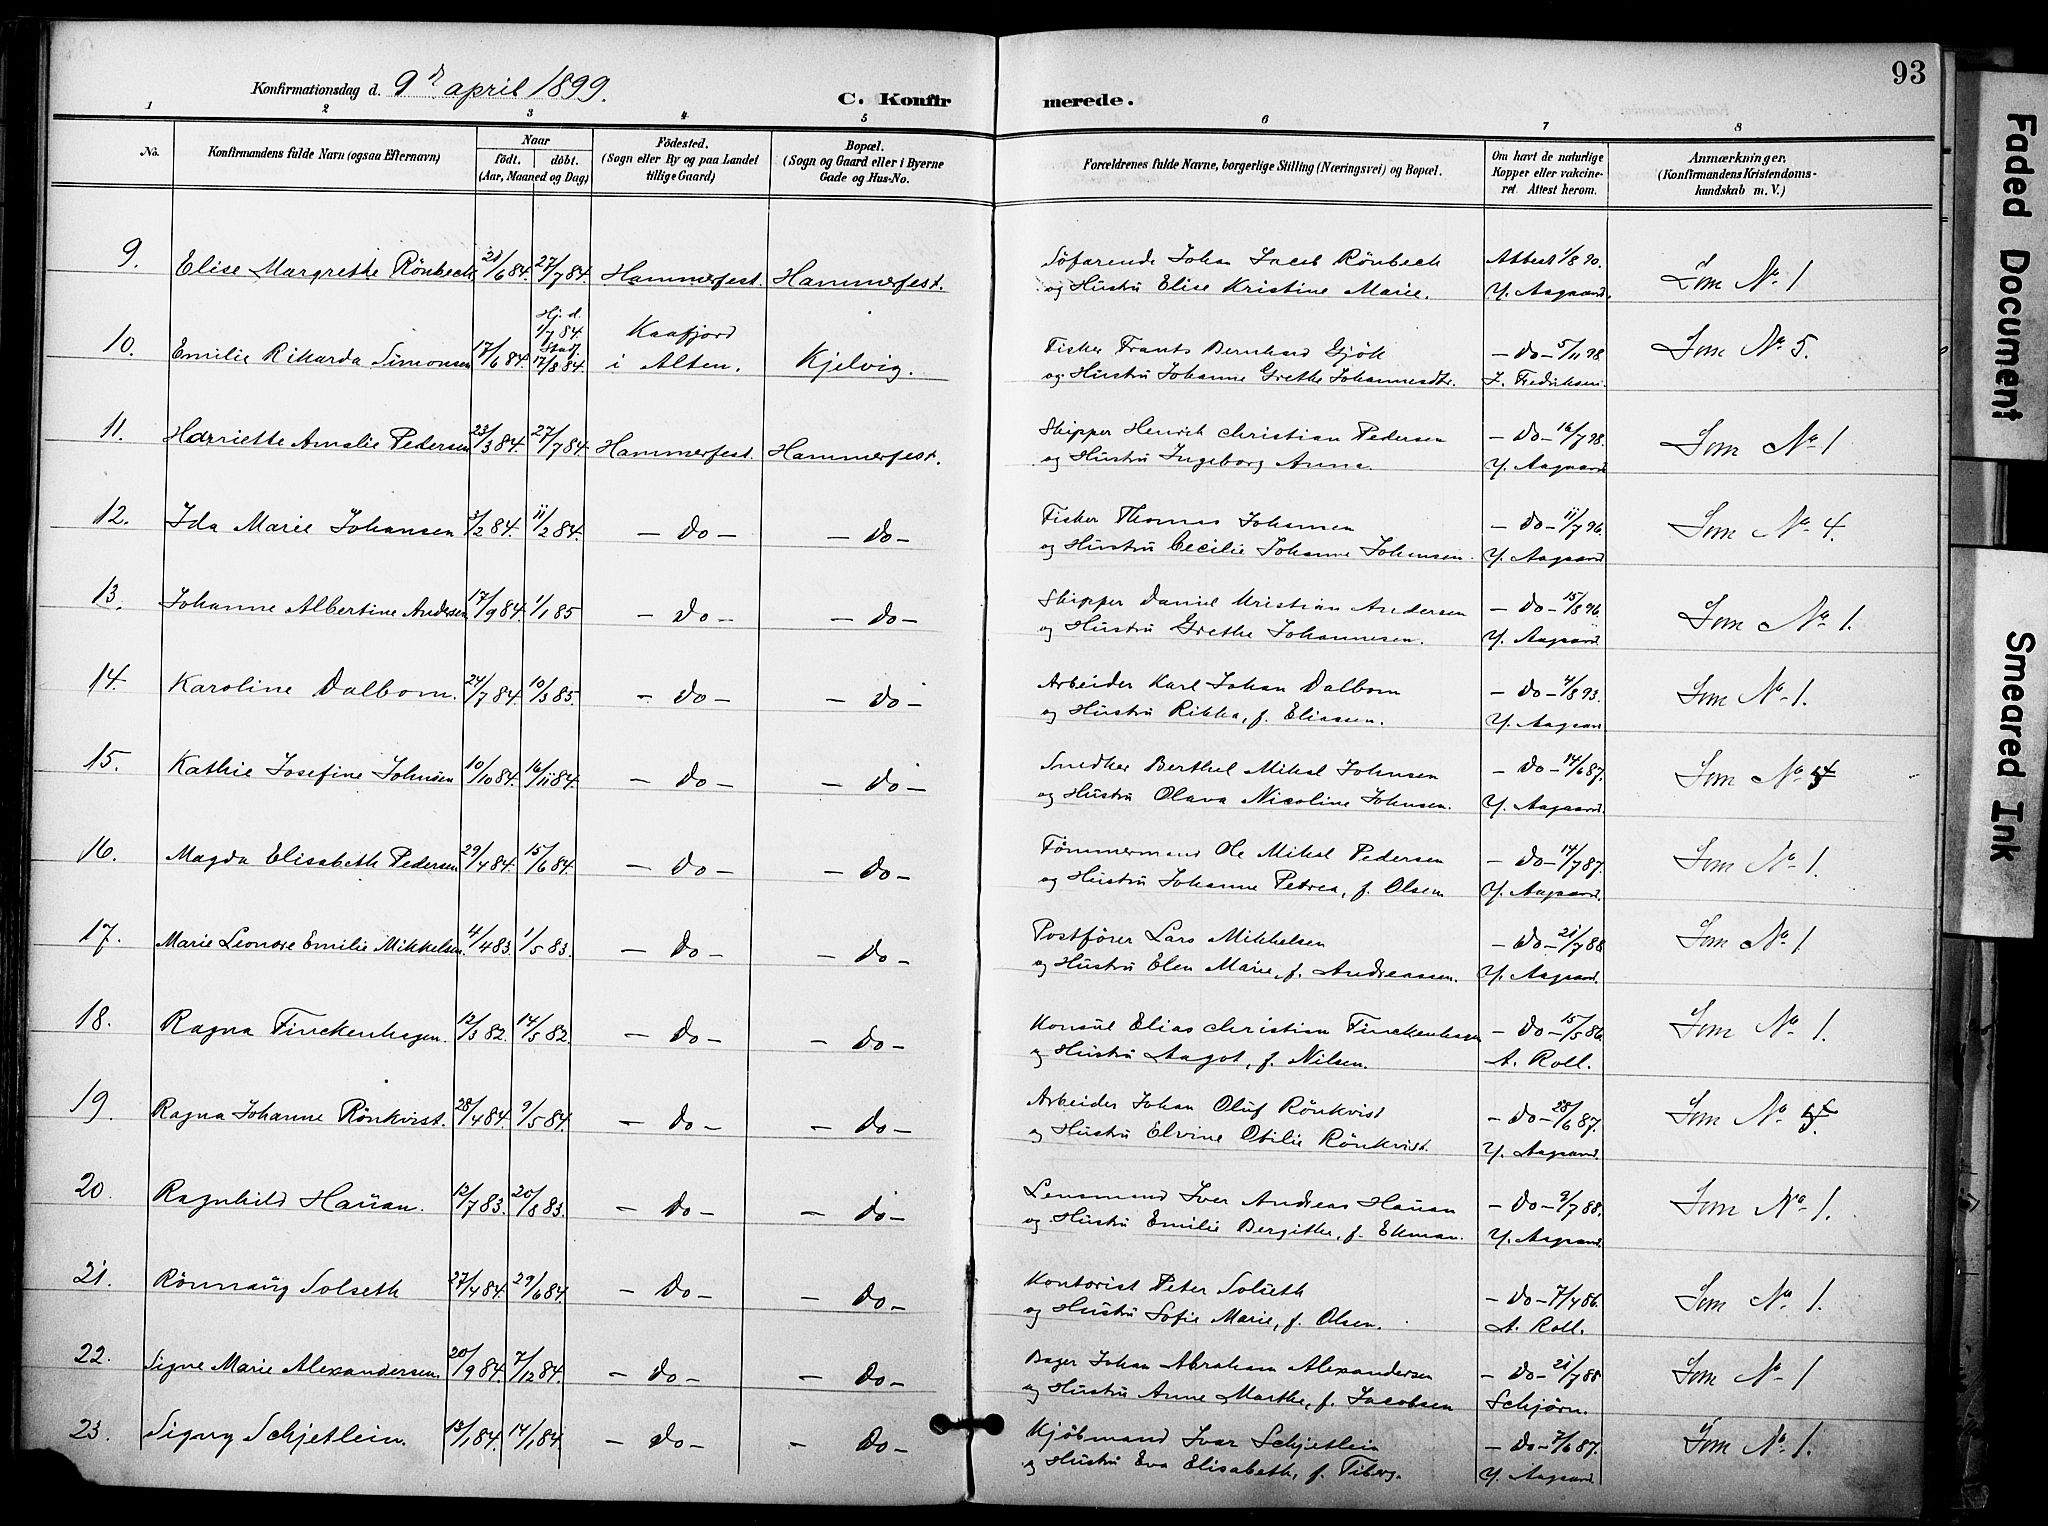 93
Konfirmationsdag d. 9de april 1899.
C. Konfirmerede.
1 2 3 4 5 6 7 8
No.
Konfirmandens fulde Navn (ogsaa Efternavn)
Naar
født. døbt.
(Aar, Maaned og Dag)
Fødested.
(Sogn eller By og paa Landet
tillige Gaard)
Bopæl.
(Sogn og Gaard eller i Byerne
Gade og Hus-No.
Forældrenes fulde Navne, borgerlige Stilling (Næringsvei) og Bopæl.
Om havt de naturlige
Kopper eller vakcine-
ret. Attest herom.
Anmærkninger.
(Konfirmandens Kristendoms-
kundskab m. V.)
9. Elise Margrethe Rönbeck 21/6 84. 27/7 84. Hammerfest. Hammerfest. Søfarende Johan Jacob Rönbech Attest 1/8 90. Som No 1
og Hustru Elise Kristine Marie. Y. Aagaard.
10. Emilie Rikarda Simonsen 17/6 84. Hj. d. 1/7 84. Stadf. 17/8 84. Kaafjord i Alten. Kjelvig. Fisker Frants Bernhard Gjök - Do - 5/11 98. Som No 5.
og Hustru Johanne Grethe Johannesdtr. Z. Fredriksen.
11. Harriette Amalie Pedersen 23/3 84. 27/7 84. Hammerfest. Hammerfest. Skipper Henrik Christian Pedersen - Do - 16/7 98. Som No 1
og Hustru Ingeborg Anna. Y. Aagaard
12. Ida Marie Johansen 3/2 84. 11/2 84. - Do - - Do - Fisker Thomas Johansen - Do - 11/7 96. Som No 4.
og Hustru Cecilie Johanne Johansen. Y. Aagaard
13. Johanne Albertine Andersen 17/9 84. 1/1 85 - Do - - Do - Skipper Daniel Kristian Andersen - Do - 15/8 96. Som No 1.
og Hustru Grethe Johannesen. Y. Aagaard.
14. Karoline Dalbom. 24/7 84. 10/3 85. - Do - - Do - Arbeider Karl Johan Dalbom - Do - 4/8 93. Som No 1.
og Hustru Rikka, f. Eliassen. Y. Aagaard.
15. Kathie Josefine Johnsen 10/10 84. 16/11 84. - Do - - Do - Snedker Berthel Mikal Johnsen - Do - 14/6 87. Som No
og Hustru Olava Nicoline Johnsen. Y. Aagaard.
16. Magda Elisabeth Pedersen 29/4 84. 15/6 84. - Do - - Do - Tømmermand Ole Mikal Pedersen - Do - 14/7 87. Som No 1.
og Hustru Johanne Petrea, f. Olsen Y. Aagaard.
17. Marie Leonore Emilie Mikkelsen. 4/4 83. 1/5 83. - Do - - Do - Postfører Lars Mikkelsen - Do - 21/7 88. Som No 1
og Hustru Elen Marie, f. Andreassen. Y. Aagaard.
18. Ragna Finckenhagen. 12/3 82. 14/5 82. - Do - - Do - Konsul Elias Christian Finckenhagen - Do - 15/5 86. Som No 1.
og Hustru Aagot, f. Nilsen. A. Roll.
19. Ragna Johanne Rönkvist. 28/4 84. 9/5 84. - Do - - Do - Arbeider Johan Oluf Rönkvist - Do - 28/6 87. Som No
og Hustru Elvine Otilie Rönkvist. Y. Aagaard.
20. Ragnhild Hauan. 12/7 83. 20/8 83. - Do - - Do - Lensmand Iver Andreas Hauan - Do - 9/7 88. Som No 1.
og Hustru Emilie Bergitha, f. Ekman. Y. Aagaard
21. Rönnaug Solseth 27/4 84. 29/6 84. - Do - - Do - Kontorist Peter Solseth - Do - 7/4 86. Som No 1.
og Hustru Sofie Marie, f. Olsen. A. Roll.
22. Signe Marie Alexandersen. 20/9 84. 7/12 84. - Do - - Do - Bager Johan Abraham Alexandersen - Do - 21/7 88 Som No 1
og Hustru Anne Marthe, f. Jacobsen Schjørn.
23. Signy Schjetlein. 13/1 84. 14/1 84. - Do - - Do - Kjøbmand Ivar Schjetlein - Do - 7/6 87. Som No 1.
og Hustru Eva Elisabeth, f. Tiberg. Y. Aagaard
Faded Document
Smeared Ink